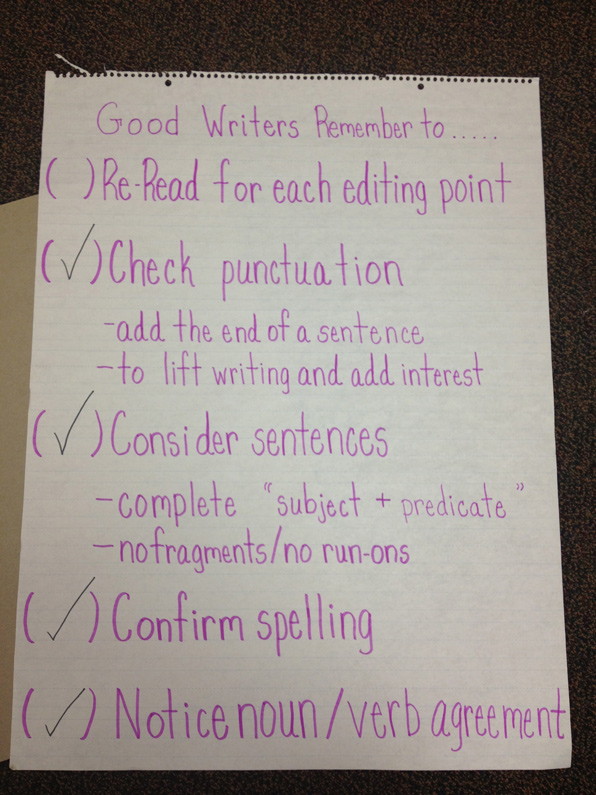 Good Writers Remember to.....
( ) Re-Read for each editing point
(✓) Check punctuation
-add the end of a sentence
-to lift writing and add interest
(✓) Consider sentences
-complete "subject + predicate"
-no fragments/no run-ons
(✓) Confirm spelling
(✓) Notice noun/verb agreement